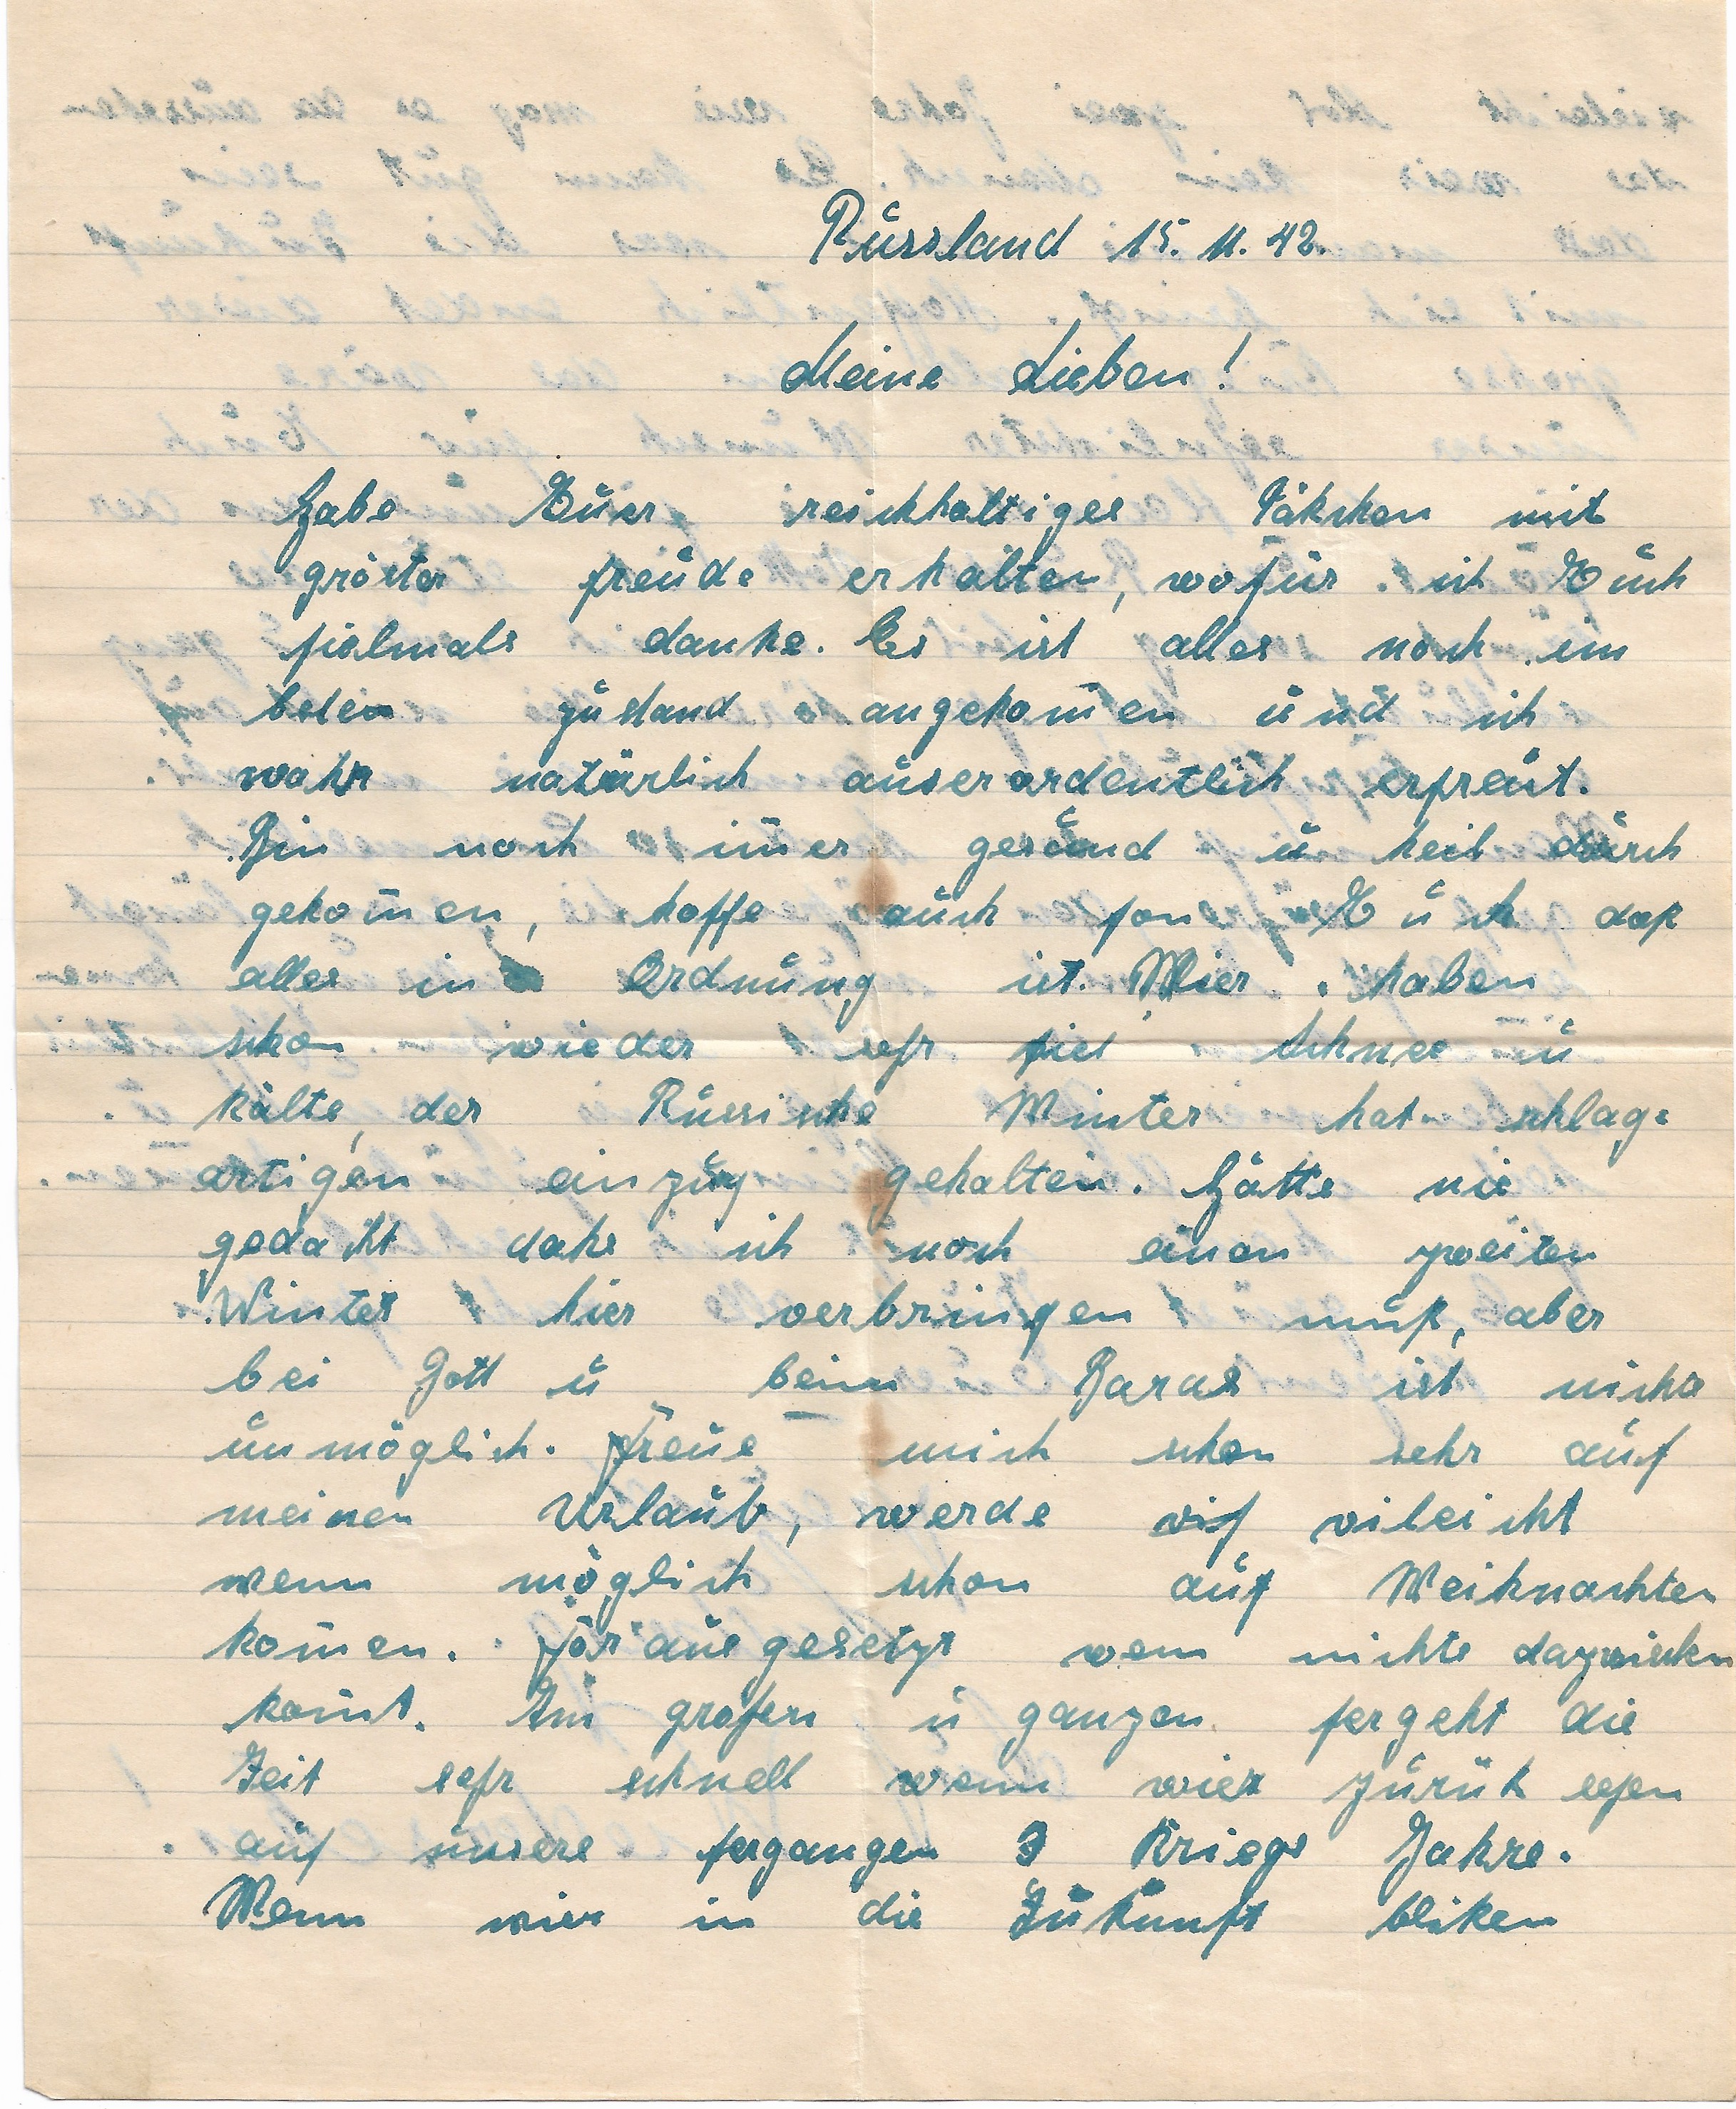 Russland 15. 11. 42.
Meine Lieben!
Habe Euer reichhaltiges Päkchen mit
gröster freude erhalten, wofür ich Euch
fielmals danke. Es ist alles noch im
besten zustand angekom̄en und ich
wahr natürlich auserordentlich erfreut.
Bin noch im̄er gesund u heil durch
gekom̄en, hoffe auch fon Euch daß
alles in Ordnung ist. Wier haben
schon wieder sehr fiel Schnee u
kälte, der Russische Winter hat schlag=
artigen einzug gehalten. Hätte nie
gedacht dahs ich noch einen zweiten
Winter hier verbringen muß, aber
bei Gott u beim Baras ist nichts
unmöglich. Freue mich schon sehr auf
meinen Urlaub, werde vileicht
wenn möglich schon auf Weihnachten
kom̄en. Forausgesetzt wen nichts dazwischen
kom̄t. Im großen u ganzen fergeht die
Zeit sehr schnell wenn wier zurük sehen
auf unsere fergangen 3 Kriegs Jahre.
Wenn wier in die Zukunft bliken